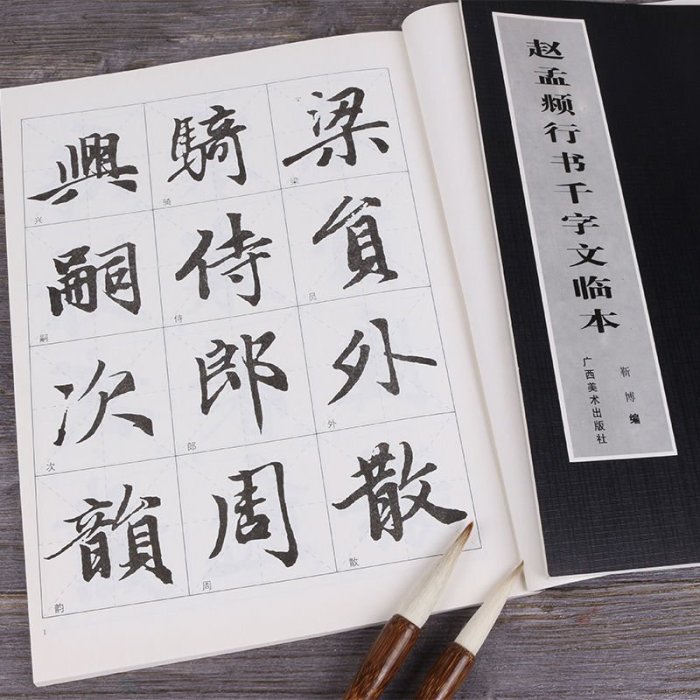 赵孟頫行书千字文临本
靳博 编
广西美术出版社
梁員外散
梁
员
外
散
騎侍郎周
骑
侍
郎
周
興嗣次韻
兴
嗣
次
韵
1